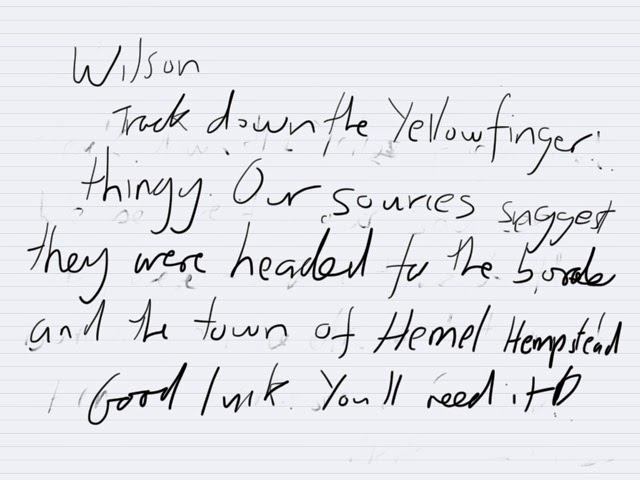 Wilson
Track down the Yellowfinger
thingy. Our sources suggest
they were headed to the borde
and the town of Hemel Hempstead
Good luck. You'll need it